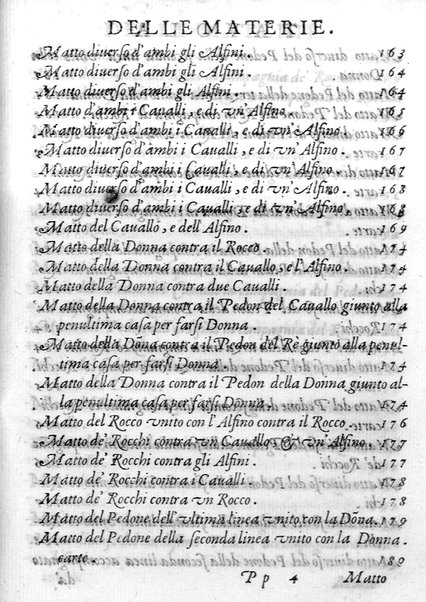 DELLE MATERIE.
Matto diuerso d'ambi gli Alfini. 163
Matto diuerso d'ambi gli Alfini. 164
Matto diuerso d'ambi gli Alfini. 164
Matto d'ambi i Caualli, e di vn'Alfino. 165
Matto diuerso d'ambi i Caualli, e di vn'Alfino. 166
Matto diuerso d'ambi i Caualli, e di vn'Alfino. 167
Matto diuerso d'ambi i Caualli, e di vn'Alfino. 167
Matto diuerso d'ambi i Caualli, e di vn'Alfino. 168
Matto diuerso d'ambi i Caualli, e di vn'Alfino. 168
Matto del Cauallo, e dell'Alfino. 169
Matto della Donna contra il Rocco. 174
Matto della Donna contra il Cauallo, e l'Alfino. 174
Matto della Donna contra due Caualli. 174
Matto della Donna contra il Pedon del Cauallo giunto alla
penultima casa per farsi Donna. 174
Matto della Donna contra il Pedon del Rè giunto alla penul-
tima casa per farsi Donna. 174
Matto della Donna contra il Pedon della Donna giunto al-
la penultima casa per farsi Donna. 174
Matto del Rocco vnito con l'Alfino contra il Rocco. 176
Matto de' Rocchi contra vn Cauallo, & vn'Alfino. 177
Matto de' Rocchi contra gli Alfini. 177
Matto de' Rocchi contra i Caualli. 178
Matto de' Rocchi contra vn Rocco. 178
Matto del Pedone dell'vltima linea vnito con la Dōna. 179
Matto del Pedone della seconda linea vnito con la Donna
carte. 180
P p 4 Matto